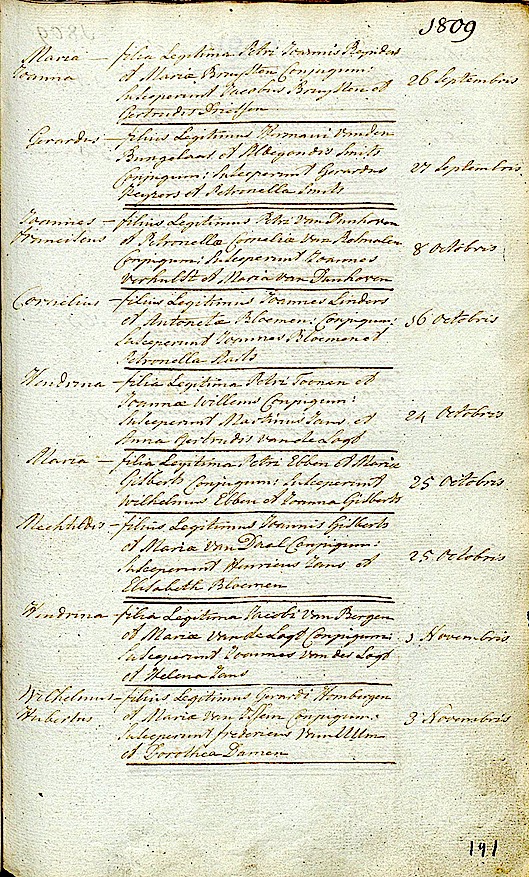 1809
Maria — filia Legitima Petri Joannis Reynders
Joanna et Mariæ Bruysten Conjugum:
Susceperunt Jacobus Bruysten et
Gertrudis Driessen
26 Septembris
Gerardus — filius Legitimus Hermani Vanden
Bungelaar et Aldegondis Smits
Conjugum: Susceperunt Gerardus
Keysers et Petronella Smits
27 Septembris
Joannes — filius Legitimus Petri Van Dunhoven
Franciscus et Petronellæ Corneliæ Van
Conjugum: Susceperunt Joannes
Verhulst et Maria Van Dunhoven
8 Octobris
Cornelius — filius Legitimus Joannes Linders
et Antoneta Bloemen: Conjugum:
Susceperunt Joannes Bloemen et
Petronella
16 Octobris
Hendrina — filia Legitima Petri Toonen et
Joannæ Willems Conjugum:
Susceperunt Martinus Jans et
Anna Gertrudis Vande Logt
24 Octobris
Maria — filia Legitima Petri Ebben et Maria
Gilberts Conjugum: Susceperunt
Wilhelmus Ebben et Joanna Gilberts
25 Octobris
Mechtildis — filius Legitimus Joannis Gilberts
et Maria Van Daal Conjugum:
Susceperunt Henricus Jans et
Elisabeth Bloemen
25 Octobris
Hendrina — filia Legitima Jacobi Van Bergen
et Mariæ Van de Logt Conjugum:
Susceperunt Joannes Van des Logt
et Helena Jans
1 Novembris
Wilhelmus — filius Legitimus Gerardi Hombergen
Hubertus et Maria Van Conjugum:
Susceperunt fredericus Van Ulm
et Dorothea Damen
3 Novembris
191